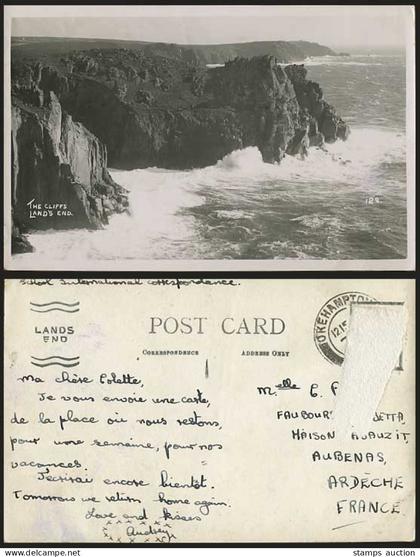 THE CLIFFS
LAND'S END.
128
School International correspondence.
LANDS
END
POST CARD
CORRESPONDENCE
ADDRESS ONLY
OKEHAMPTON
12.15
Ma chère Colette,
Je vous envoie une carte,
de la place où nous restons,
pour une semaine, pour nos
vacances.
J'écrirai encore bientôt.
Tomorrow we return home again.
Love and kisses
x x x x x
Audrey
x x x x x x x
Melle C.
FAUBOURG
MAISON AUAUZIT,
AUBENAS,
ARDÈCHE
FRANCE
stamps animes